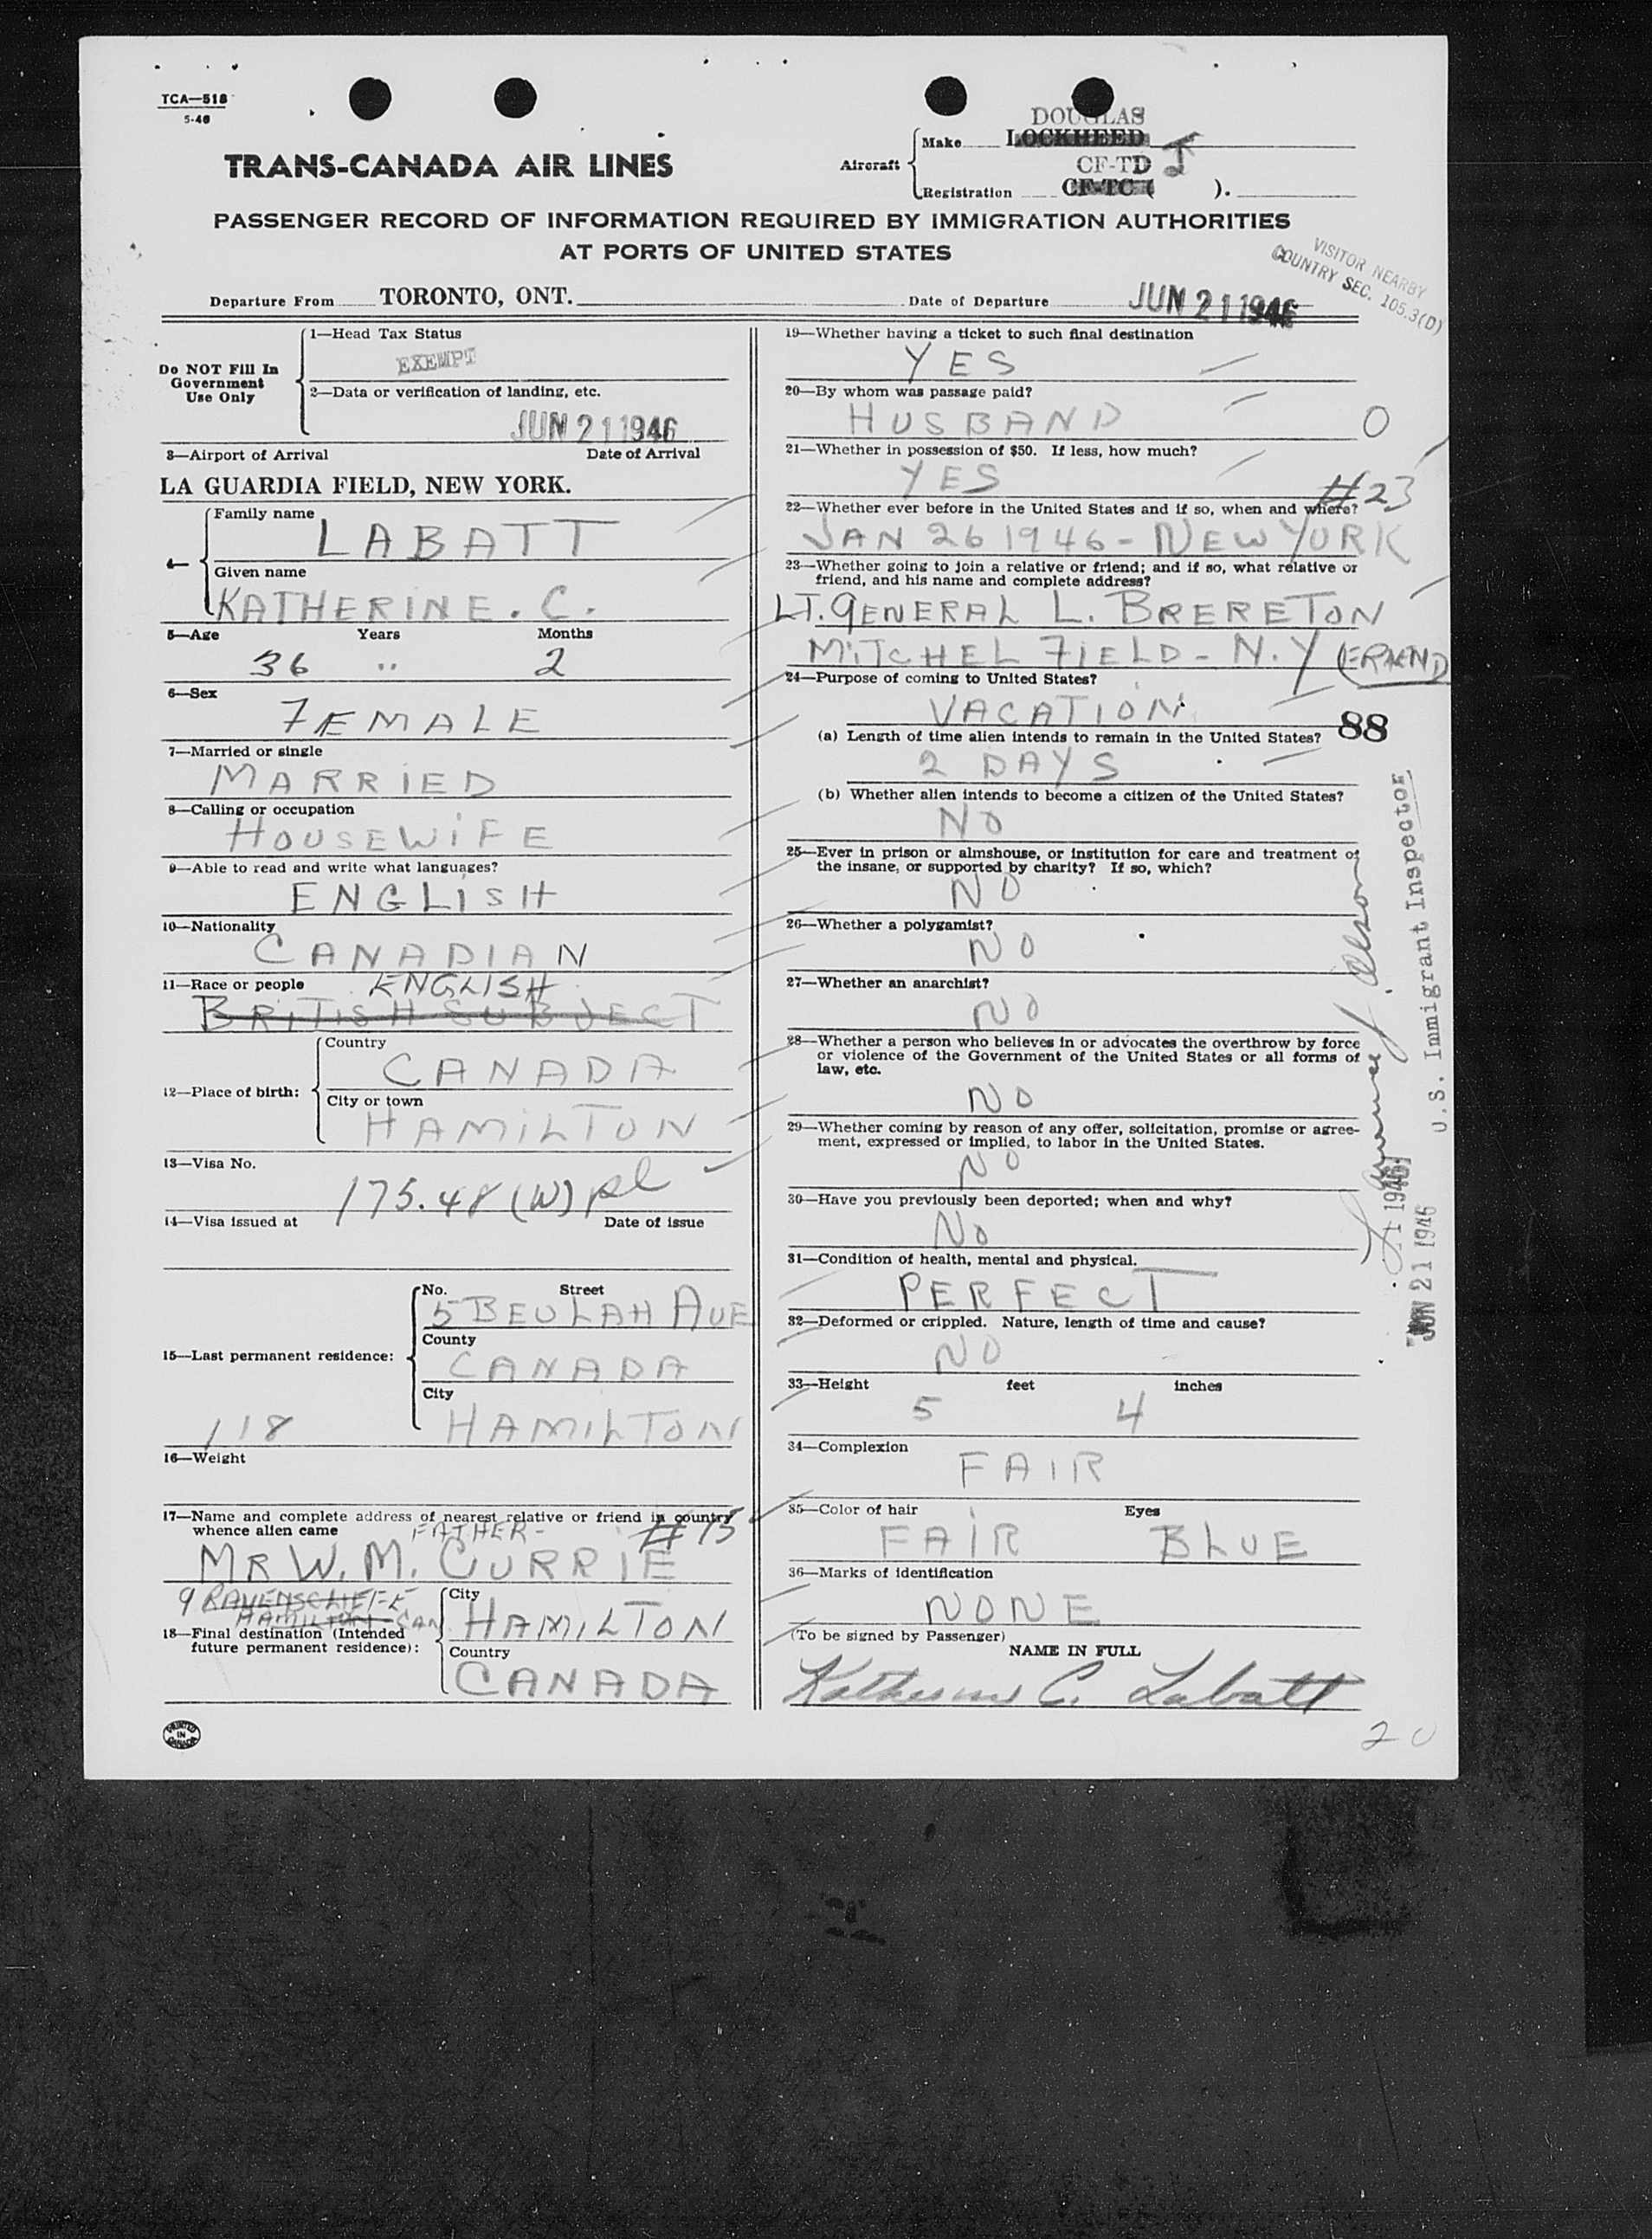 TCA—518
5-46
TRANS-CANADA AIR LINES
Aircraft
Make
DOUGLAS
LOCKHEED
CF-TD J
Registration CF-TC ( ).
PASSENGER RECORD OF INFORMATION REQUIRED BY IMMIGRATION AUTHORITIES
AT PORTS OF UNITED STATES
VISITOR NEARBY
COUNTRY SEC. 105.3(D)
Departure From TORONTO, ONT. Date of Departure JUN 21 1946
Do NOT Fill In
Government
Use Only
1—Head Tax Status
EXEMPT
2—Data or verification of landing, etc.
JUN 21 1946
3—Airport of Arrival Date of Arrival
LA GUARDIA FIELD, NEW YORK.
4—
Family name
LABATT
Given name
KATHERINE. C.
5—Age Years Months
36 " 2
6—Sex
FEMALE
7—Married or single
MARRIED
8—Calling or occupation
HOUSEWIFE
9—Able to read and write what languages?
ENGLISH
10—Nationality
CANADIAN
11—Race or people ENGLISH
BRITISH SUBJECT
12—Place of birth:
Country
CANADA
City or town
HAMILTON
13—Visa No.
175.48 (W) pl
14—Visa issued at Date of issue
15—Last permanent residence:
No. Street
5 BEULAH AVE
County
CANADA
City
HAMILTON
118
16—Weight
17—Name and complete address of nearest relative or friend in country
whence alien came FATHER - #15
MR W. M. CURRIE
9 RAVENSCLIFFE
HAMILTON CAN
18—Final destination (Intended
future permanent residence):
City
HAMILTON
Country
CANADA
PRINTED
IN
CANADA
19—Whether having a ticket to such final destination
YES
20—By whom was passage paid?
HUSBAND 0
21—Whether in possession of $50. If less, how much?
YES
#23
22—Whether ever before in the United States and if so, when and where?
JAN 26 1946 - NEW YORK
23—Whether going to join a relative or friend; and if so, what relative or
friend, and his name and complete address?
LT. GENERAL L. BRERETON
MITCHEL FIELD - N.Y (FRIEND)
24—Purpose of coming to United States?
VACATION
88
(a) Length of time alien intends to remain in the United States?
2 DAYS
(b) Whether alien intends to become a citizen of the United States?
NO
25—Ever in prison or almshouse, or institution for care and treatment of
the insane, or supported by charity? If so, which?
NO
26—Whether a polygamist?
NO
27—Whether an anarchist?
NO
28—Whether a person who believes in or advocates the overthrow by force
or violence of the Government of the United States or all forms of
law, etc.
NO
29—Whether coming by reason of any offer, solicitation, promise or agree-
ment, expressed or implied, to labor in the United States.
NO
30—Have you previously been deported; when and why?
NO
31—Condition of health, mental and physical.
PERFECT
32—Deformed or crippled. Nature, length of time and cause?
NO
33—Height feet inches
5 4
34—Complexion
FAIR
35—Color of hair Eyes
FAIR BLUE
36—Marks of identification
NONE
(To be signed by Passenger)
NAME IN FULL
Katherine C. Labatt
20
U.S. Immigrant Inspector
JUN 21 1946